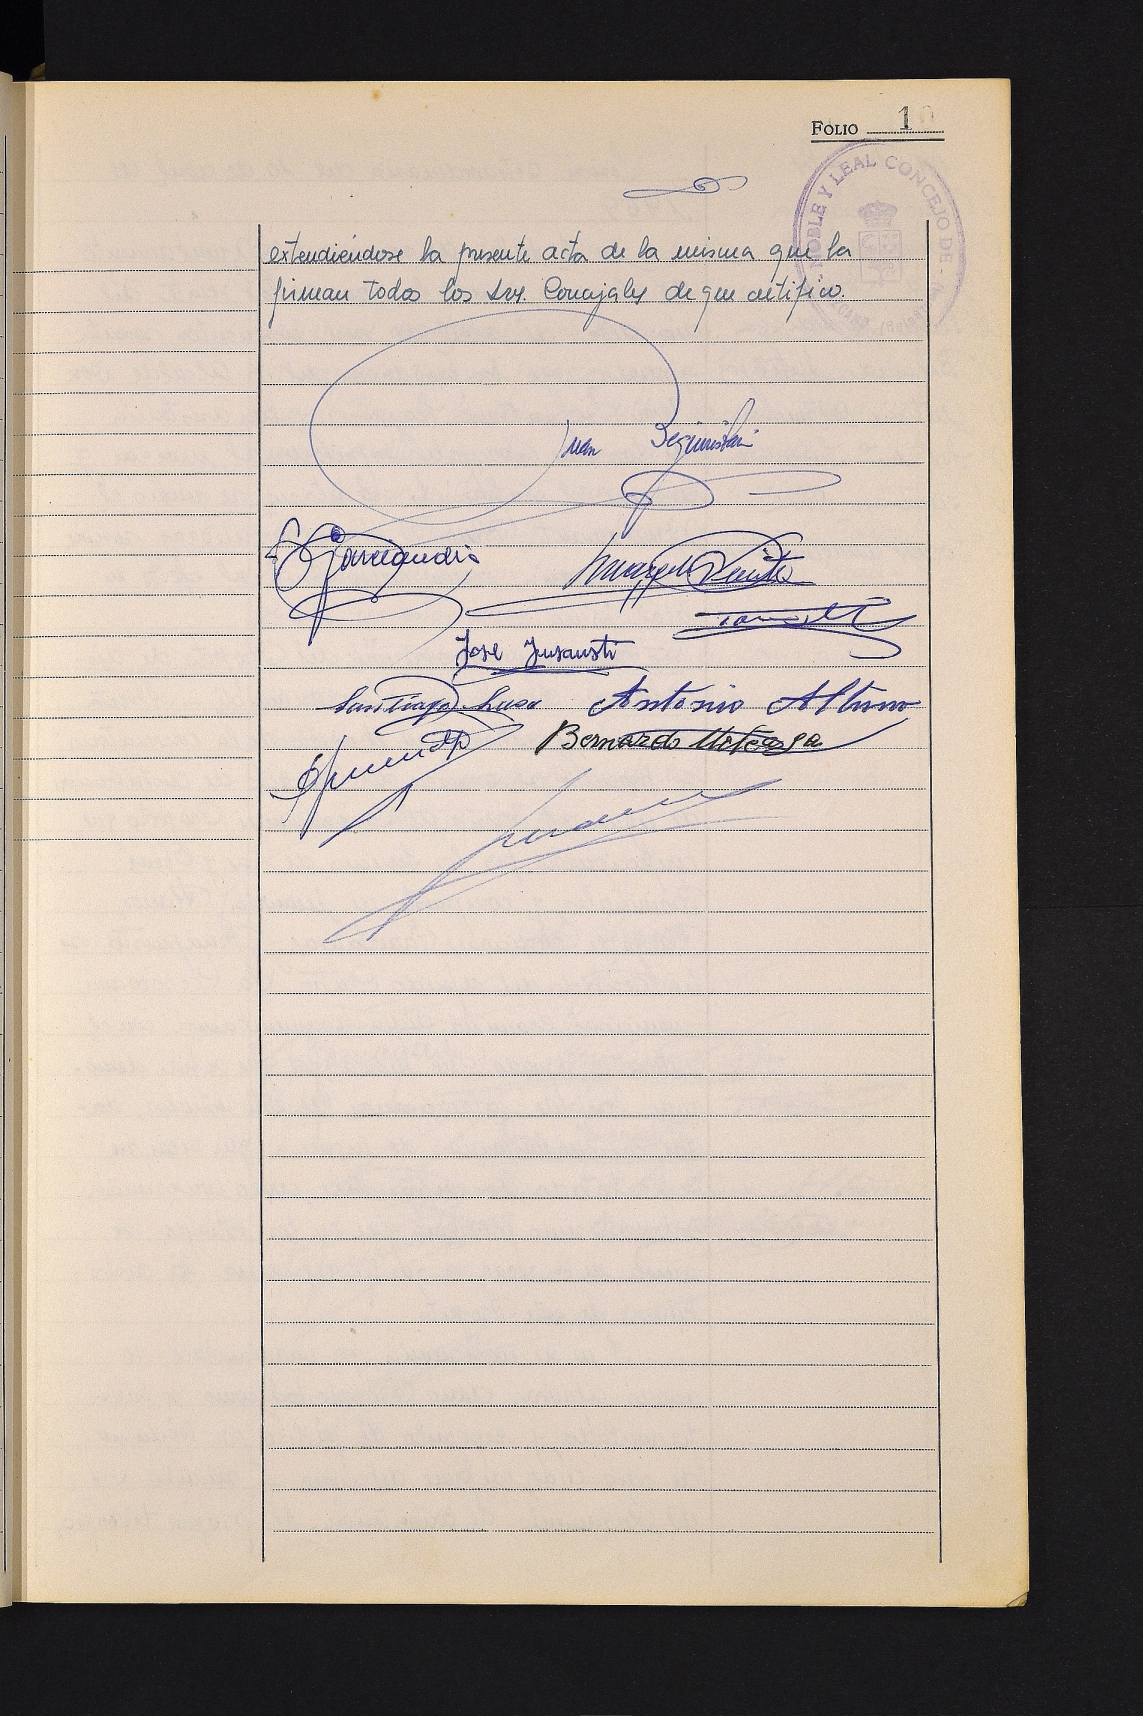 FOLIO 10
NOBLE Y LEAL CONCEJO DE
extendiéndose la presente acta de la misma que la
firman todos los Srs. Concejales de que certifico.
Juan Beguiristain
Garciandia
José Insausti
Santiago Lasa Antonio Altuna
Bernardo Arteaga